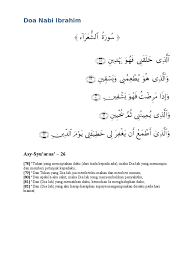 Doa Nabi Ibrahim
﴿ سُورَةُ الشُّعَرَاء ﴾
ٱلَّذِى خَلَقَنِى فَهُوَ يَهْدِينِ
وَٱلَّذِى هُوَ يُطْعِمُنِى وَيَسْقِينِ
وَإِذَا مَرِضْتُ فَهُوَ يَشْفِينِ
وَٱلَّذِى يُمِيتُنِى ثُمَّ يُحْيِينِ
وَٱلَّذِىٓ أَطْمَعُ أَن يَغْفِرَ لِى خَطِيٓـَٔتِى يَوْمَ ٱلدِّينِ
Asy-Syu'araa' – 26
[78] "Tuhan yang menciptakan daku (dari tiada kepada ada), maka Dia lah yang memimpin
dan memberi petunjuk kepadaku;
[79] "Dan Tuhan yang Dia lah jua memberiku makan dan memberi minum,
[80] "Dan apabila aku sakit, maka Dia lah yang menyembuhkan penyakitku;
[81] "Dan (Dia lah) yang mematikan daku, kemudian Ia menghidupkan daku;
[82] "Dan (Dia lah) yang aku harap-harapkan supaya mengampunkan dosaku pada hari
kiamat